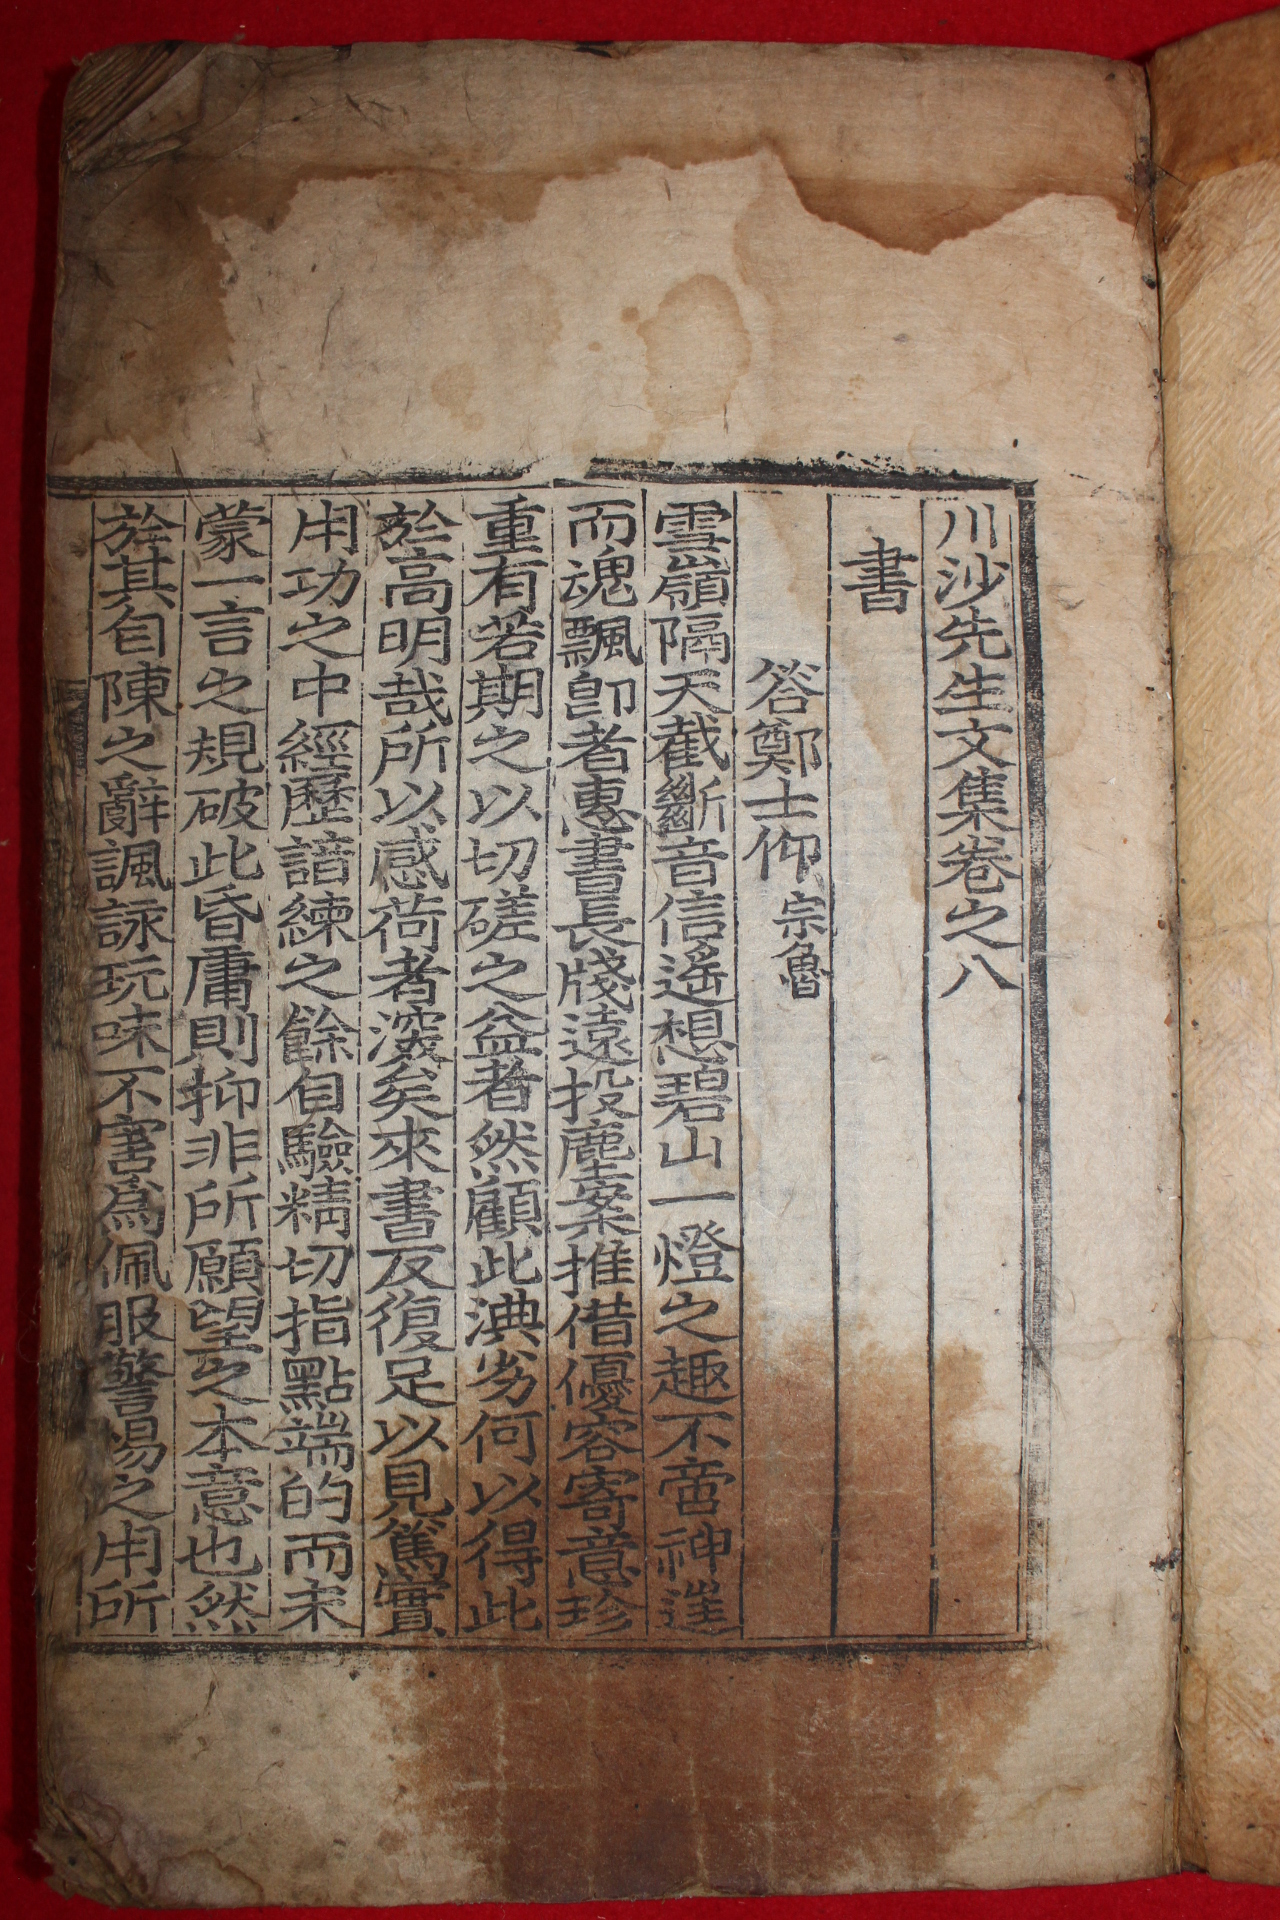 川沙先生文集卷之八
書
答鄭士仰宗魯
雪嶺隔天截斷音信遙想碧山一燈之趣不啻神逬
而魂飄卽者惠書長牋遠投塵案推借優容寄意珍
重有若期之以切磋之益者然顧此淟劣何以得此
於高明哉所以感荷者深矣來書反復足以見篤實
用功之中經歷諳練之餘自驗精切指點端的而未
蒙一言之規破此昏庸則抑非所願望之本意也然
於其自陳之辭諷詠玩味不害爲佩服警惕之用所